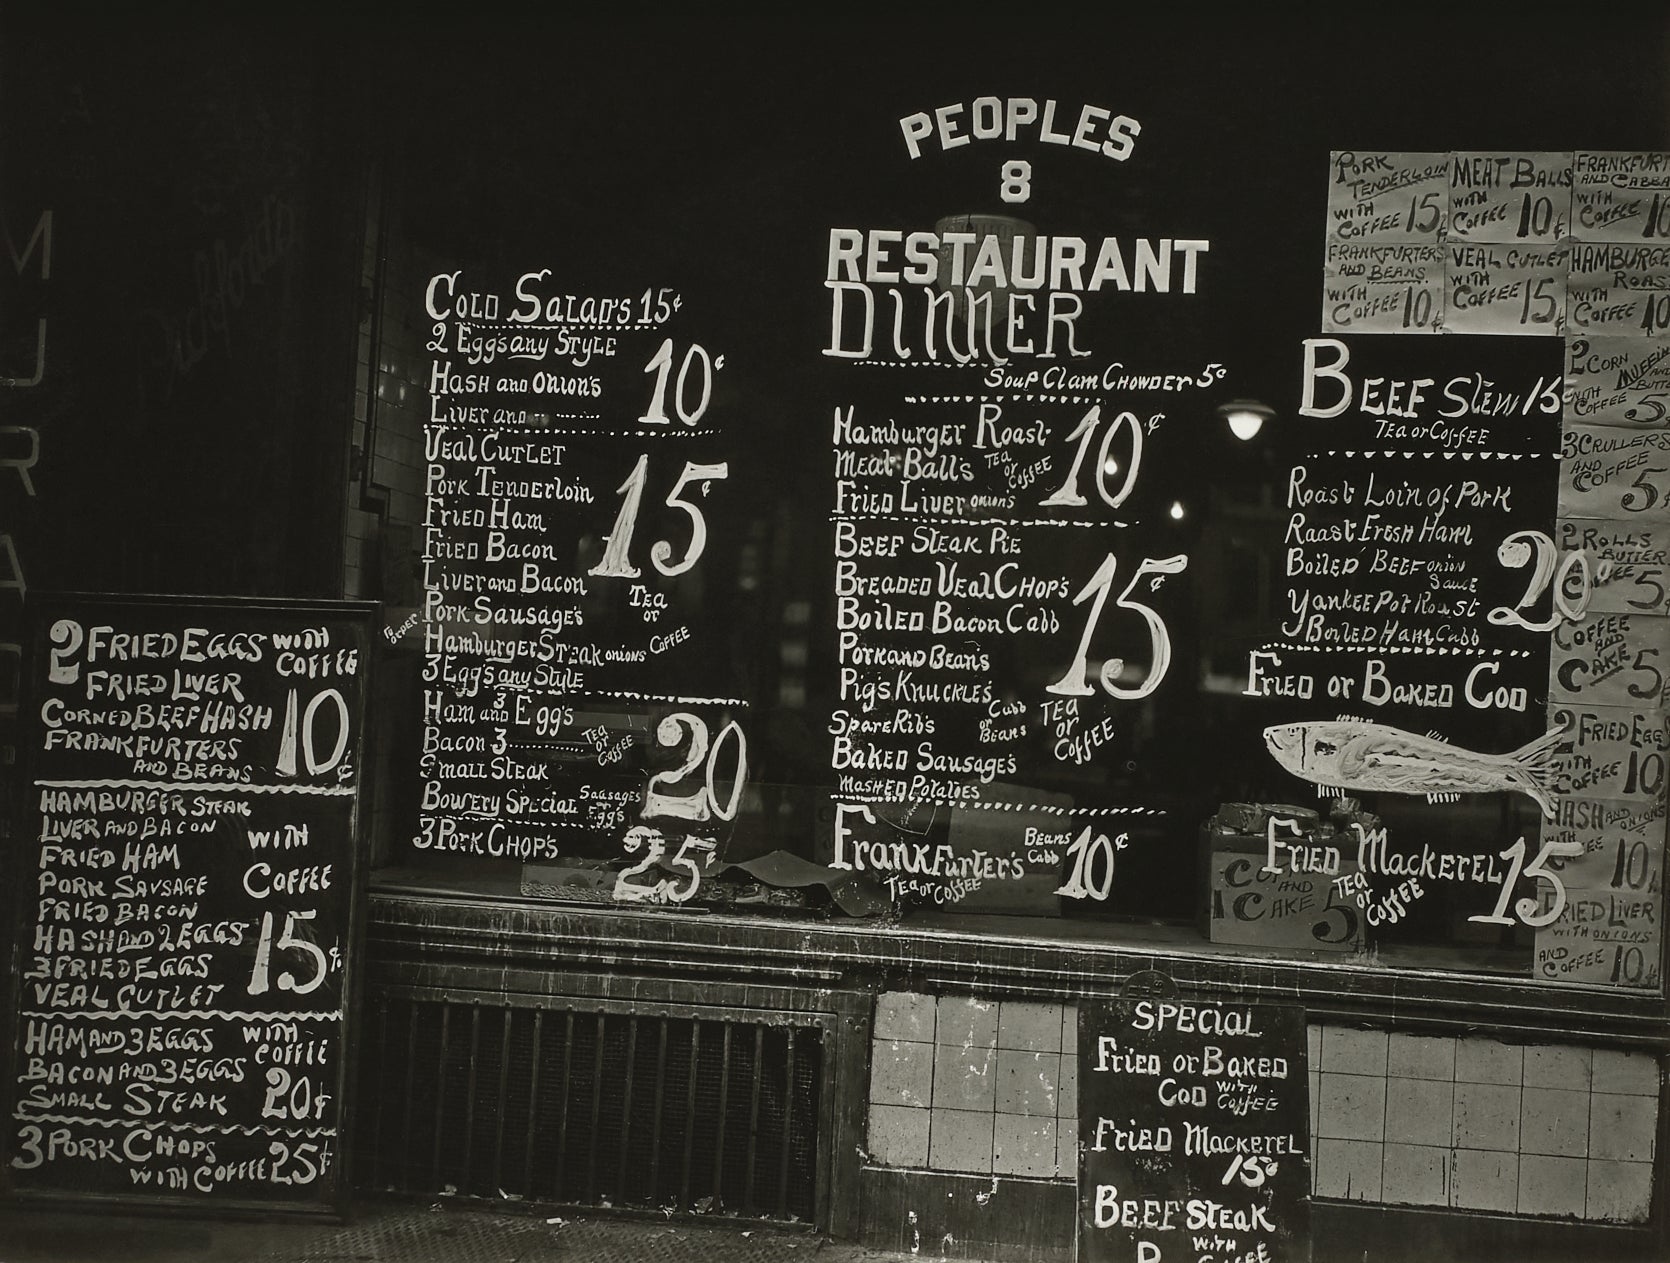 PEOPLES
8
RESTAURANT
DINNER
Soup Clam Chowder 5¢
Hamburger Roast
Meat Ball's Tea or Coffee 10¢
Fried Liver onion's
Beef Steak Pie
Breaded Veal Chop's
Boiled Bacon Cabb 15¢
Pork and Bean's
Pig's Knuckle's Cabb or Beans
Tea or Coffee
Spare Rib's
Baked Sausage's
Mashed Potatoes
Frankfurter's Beans Cabb 10¢
Tea or Coffee
Cold Salad's 15¢
2 Egg's any Style
Hash and Onion's 10¢
Liver and
Veal Cutlet
Pork Tenderloin
Fried Ham 15¢
Fried Bacon
Liver and Bacon
Tea or Coffee
Pork Sausage's
To order
Hamburger Steak onions
3 Egg's any Style
Ham and 3 Egg's
Bacon 3 Tea or Coffee 20
Small Steak
Bowery Special Sausages Egg's
3 Pork Chop's 25¢
2 FRIED EGGS WITH COFFEE
FRIED LIVER
CORNED BEEF HASH 10¢
FRANKFURTERS
AND BEANS
HAMBURGER STEAK
LIVER AND BACON WITH
FRIED HAM COFFEE
PORK SAUSAGE
FRIED BACON
HASH AND 2 EGGS 15¢
3 FRIED EGGS
VEAL CUTLET
HAM AND 3 EGGS WITH COFFEE
BACON AND 3 EGGS
SMALL STEAK 20¢
3 PORK CHOPS
WITH COFFEE 25¢
Beef Stew 15
Tea or Coffee
Roast Loin of Pork
Roast Fresh Ham
Boiled Beef onion Sauce 20¢
Yankee Pot Roast
Boiled Ham Cabb
Fried or Baked Cod
Fried Mackerel 15
Tea or Coffee
PORK TENDERLOIN WITH COFFEE 15¢
MEAT BALLS WITH COFFEE 10¢
FRANKFURT
AND CABBA
WITH COFFEE 10
FRANKFURTERS AND BEANS WITH COFFEE 10¢
VEAL CUTLET WITH COFFEE 15¢
HAMBURGE
ROAST
WITH COFFEE 10
2 CORN MUFFIN
AND BUTT
WITH COFFEE 5¢
3 CRULLERS
AND COFFEE 5¢
2 ROLLS
BUTTER
COFFEE 5¢
COFFEE
AND
CAKE 5
2 FRIED EGG
WITH COFFEE 10
HASH AND ONIONS
WITH
10¢
FRIED LIVER
WITH ONIONS
AND COFFEE 10¢
AND
1 CAKE 5¢
SPECIAL
Fried or Baked
Cod with Coffee
Fried Mackerel
15¢
BEEF STEAK
WITH